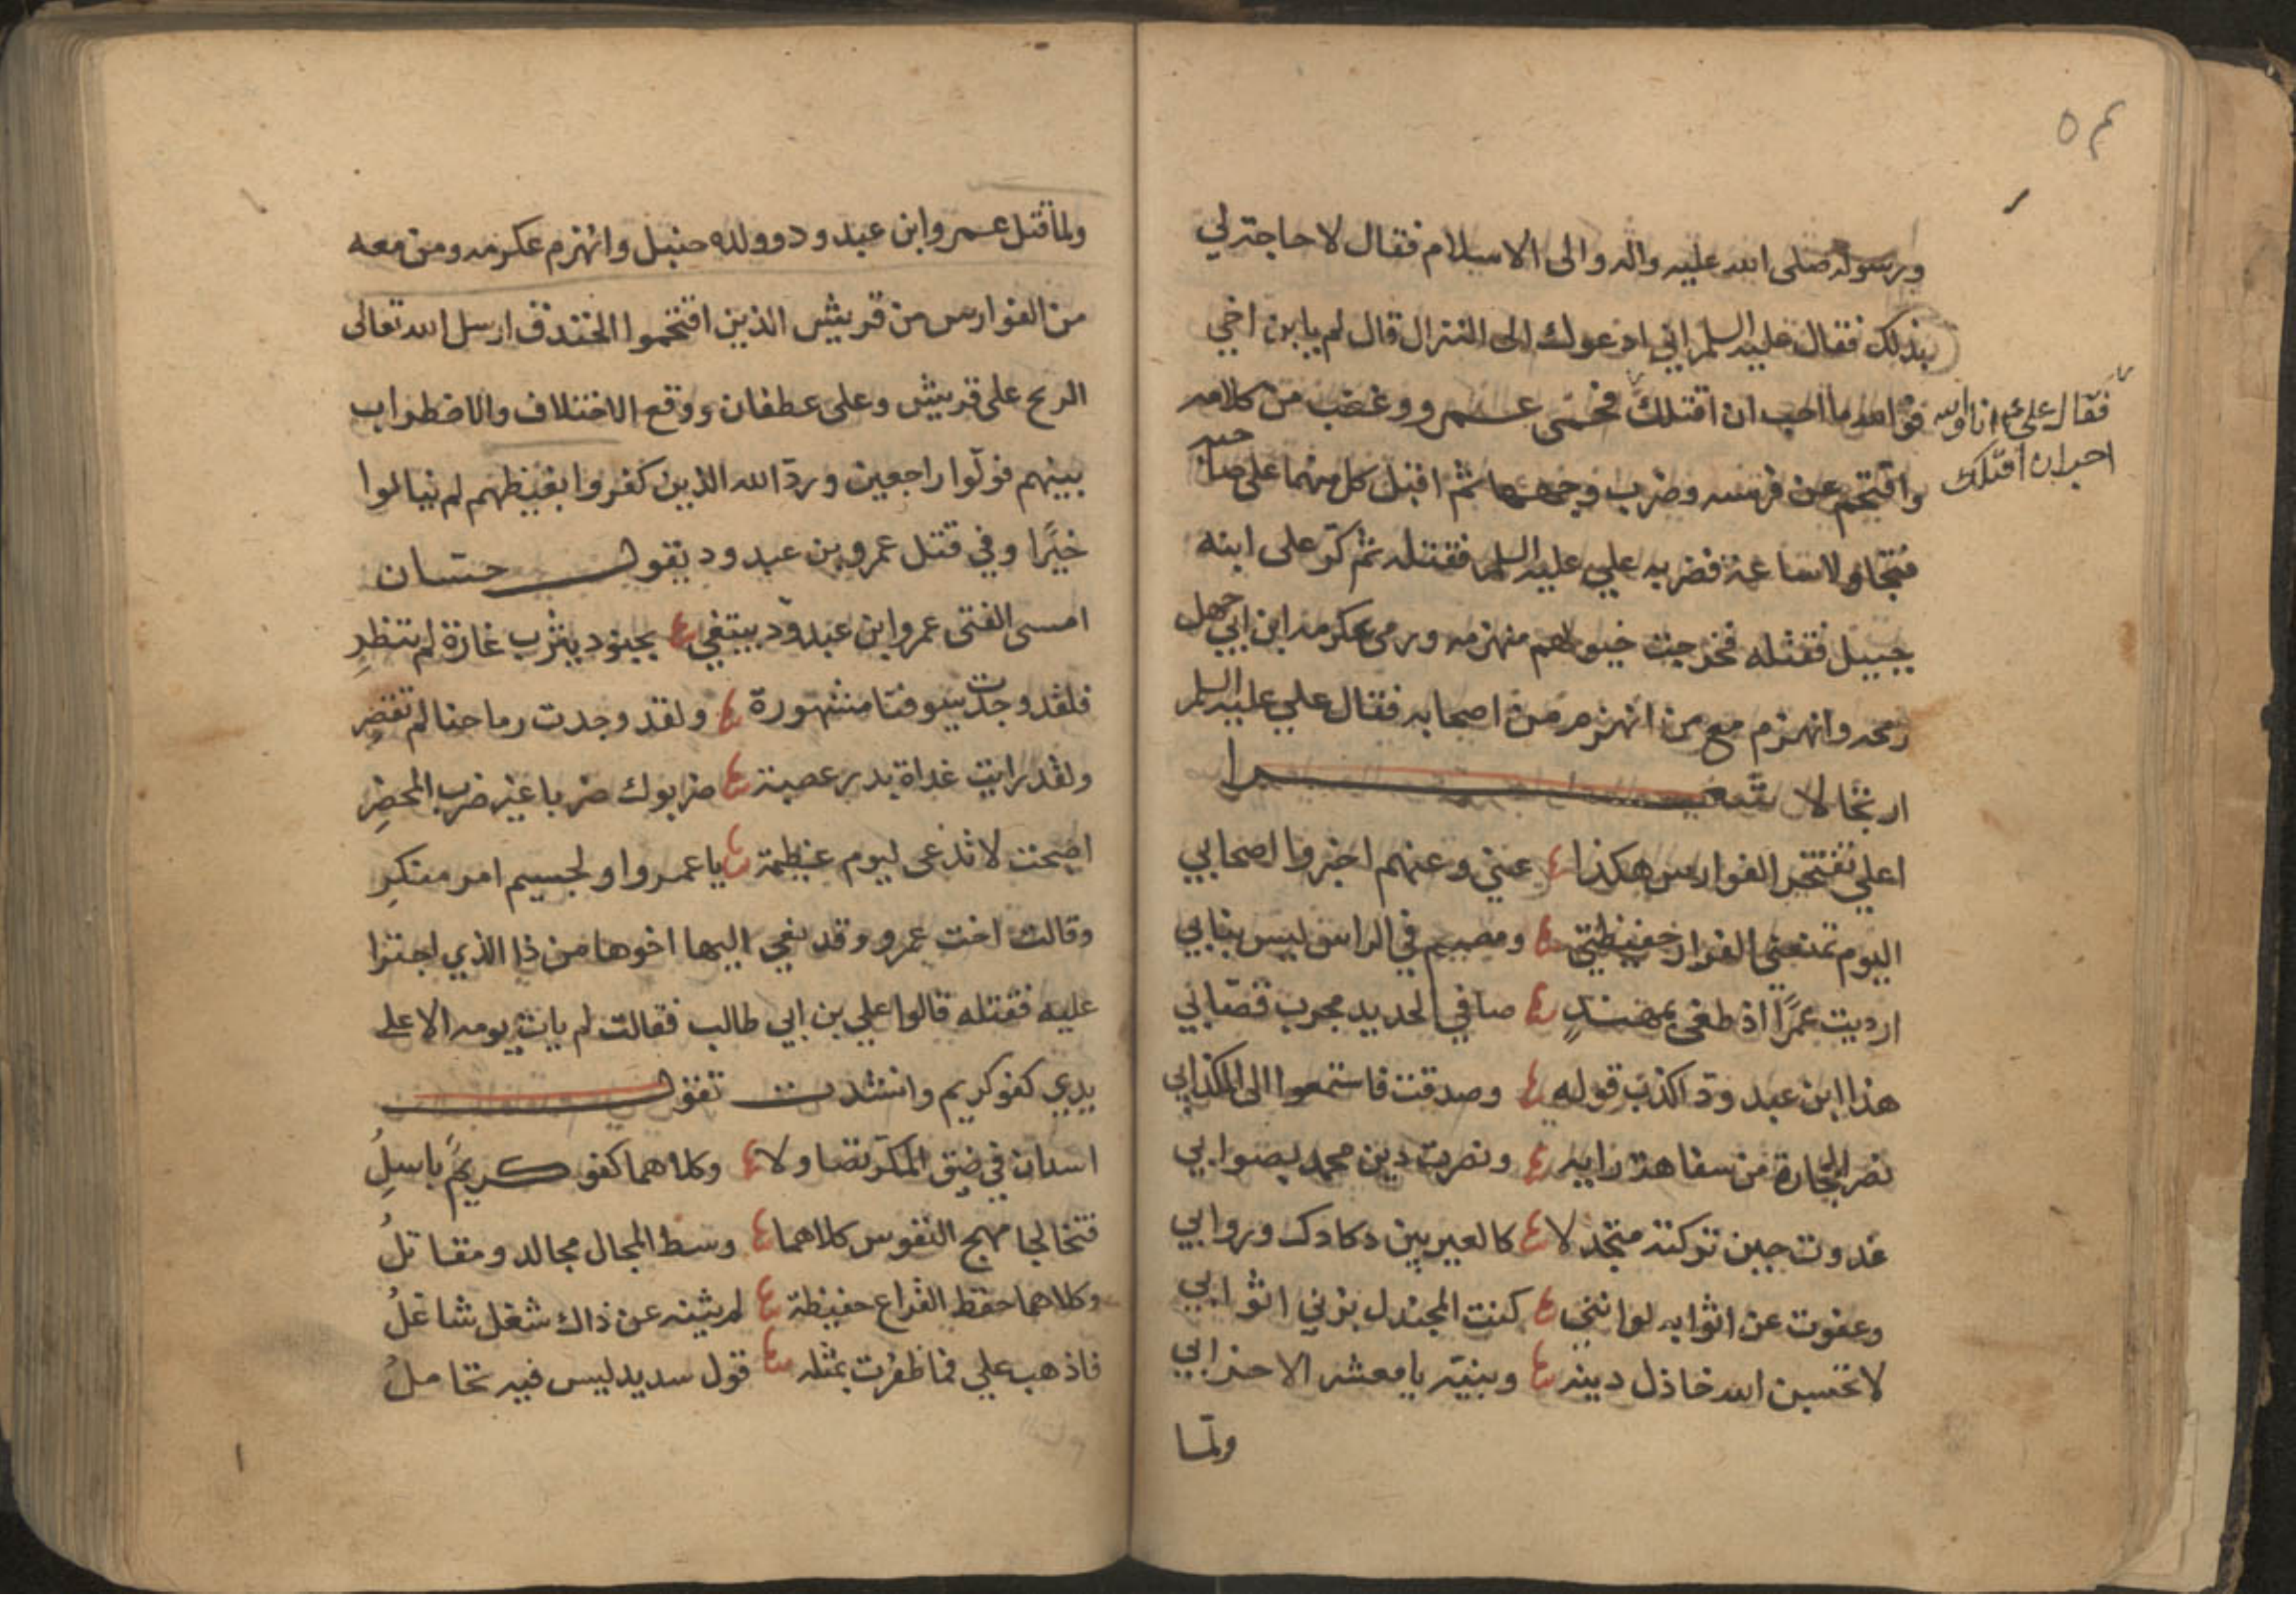 ٥٤
ورسوله صلى الله عليه واله والى الاسلام فقال لا حاجة لي
بذلك فقال عليه السلم اني ادعوك الى النزال قال لم يا بن اخي
فوالله ما احب ان اقتلك فحمى عمرو وغضب من كلامه
فقال علي انا والله
احب ان اقتلك
واقتحم عن فرسه وضرب وجهها ثم اقبل كل منهما على صاحبه
فتجاولا ساعة فضربه علي عليه السلم فقتله ثم كرّ على ابنه
حبيل فقتله فخرجت خيولهم منهزمه ورمى عكرمه ابن ابي جهل
رمحه وانهزم مع من انهزم من اصحابه فقال علي عليه السلم
ارتجالا شعرا
اعلي تفتخر الفوارس هكذا عني وعنهم اخبروا اصحابي
اليوم تمنعني الفرار حفيظتي ومصمم في الراس ليس بنابي
ارديت عمرًا اذ طغى بمهندٍ صافي الحديد مجرب قصّابي
هذا ابن عبد ودّ اكذب قوله وصدقت فاستمعوا الى الكذابي
نصر الحجارة من سفاهة رايه ونصرت دين محمد بصوابي
غدوت حين تركته متجدلا كالعير بين دكادك وروابي
وعفوت عن اثوابه لو انني كنت المجندل بزني اثوابي
لا تحسبن الله خاذل دينه ونبيّه يا معشر الاحزابي
ولمّا
ولما قتل عمرو ابن عبد ود وولده حنبل وانهزم عكرمه ومن معه
من الفوارس من قريش الذين اقتحموا الخندق ارسل الله تعالى
الريح على قريش وعلى عطفان ووقع الاختلاف والاضطراب
بينهم فولّوا راجعين وردّ الله الذين كفروا بغيظهم لم ينالوا
خيرًا وفي قتل عمرو بن عبد ود يقول حسّان
امسى الفتى عمرو ابن عبد ودّ يبتغي بجنود يثرب غارة لم تنظرِ
فلقد وجدت سيوفنا مشهورة ولقد وجدت رماحنا لم تقصرِ
ولقد رايت غداة بدر عصبة ضربوك ضربا غير ضرب المحضرِ
اصبحت لا تدعى ليوم عظيمة يا عمروا او لجسيم امر منكرِ
وقالت اخت عمرو وقد نعي اليها اخوها من ذا الذي اجترا
عليه فقتله قالوا علي بن ابي طالب فقالت لم يات يومه الا على
يدي كفو كريم وانشدت تقول
اسدان في ضيق المكرّ تصاولا وكلاهما كفو كريمٌ باسلُ
فتخالجا مهج النفوس كلاهما وسط المجال مجالد ومقاتلُ
وكلاهما حفظ القراع حفيظة لم يثنه عن ذاك شغل شاغلُ
فاذهب علي فما ظفرت بمثله قول سديد ليس فيه تحاملُ